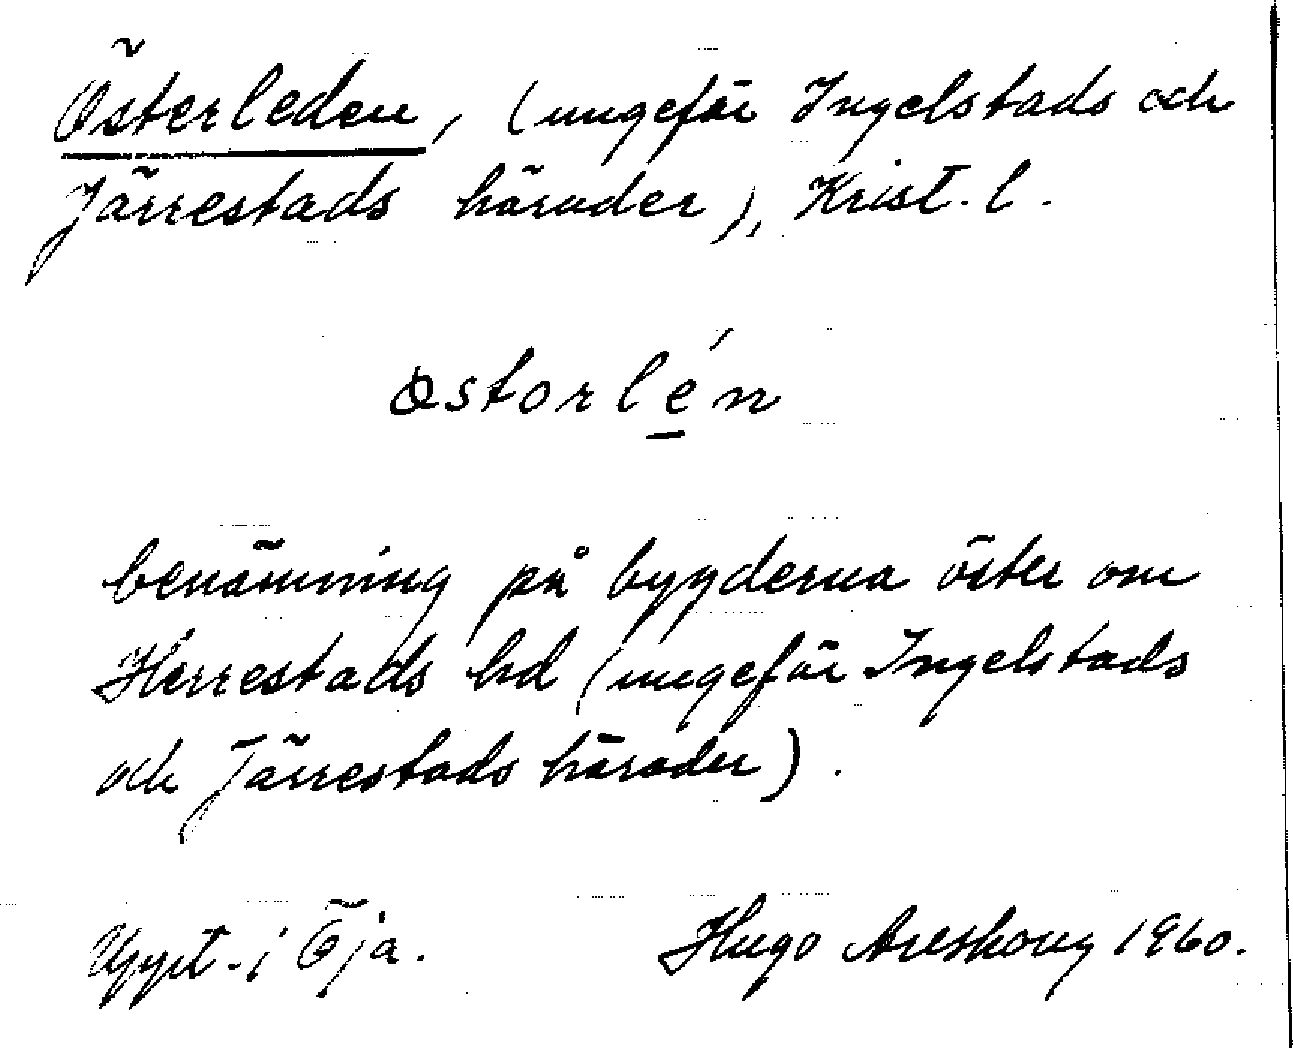 Österleden, (ungefär Ingelstads och
Järrestads härader), Krist. l.
östorlén
benämning på bygderna öster om
Herrestads hd (ungefär Ingelstads
och Järrestads härader).
Uppt. i Öja. Hugo Areskoug 1960.